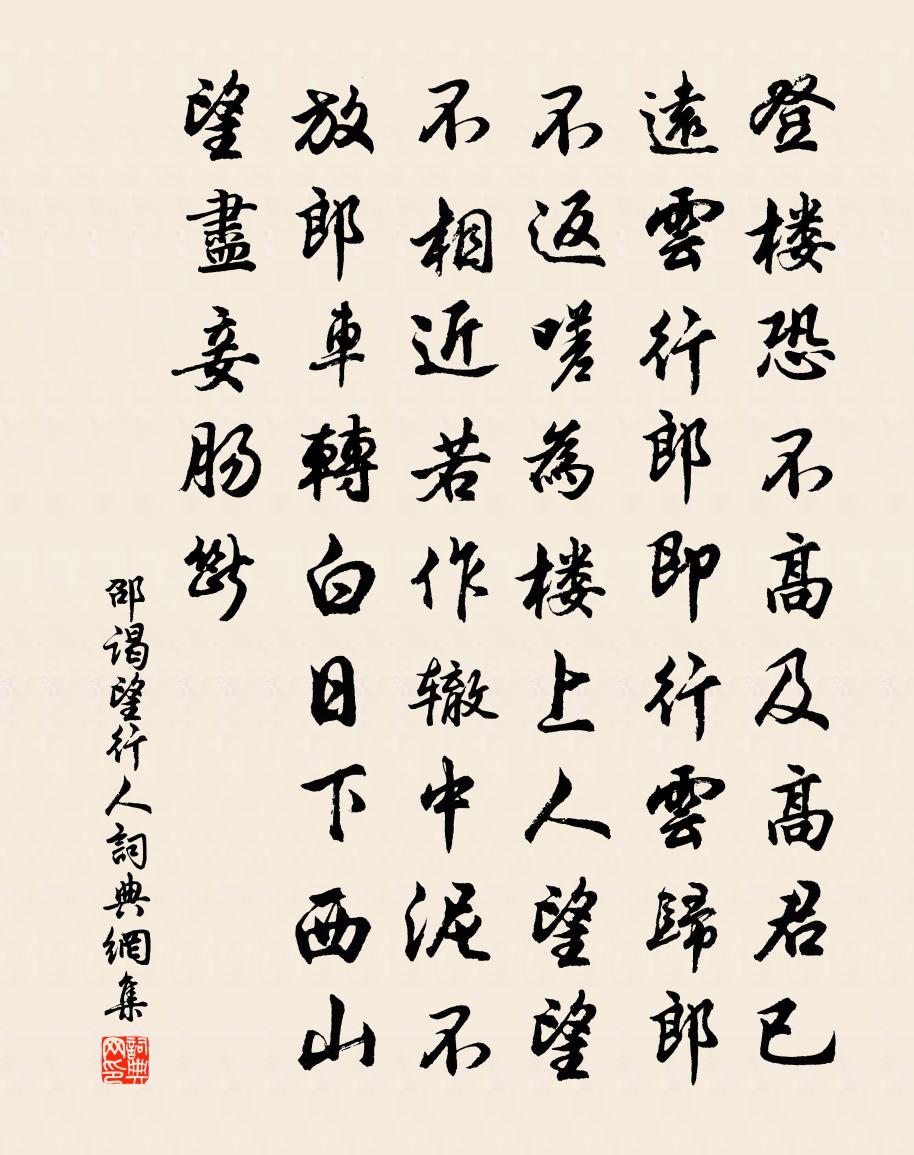 登楼恐不高及高君已
遠雲行郎即行雲歸郎
不返嗟為楼上人望望
不相近若作辙中泥不
放郎車轉白日下西山
望盡妾肠斷
邵谒望行人詞典網集
詞典网印